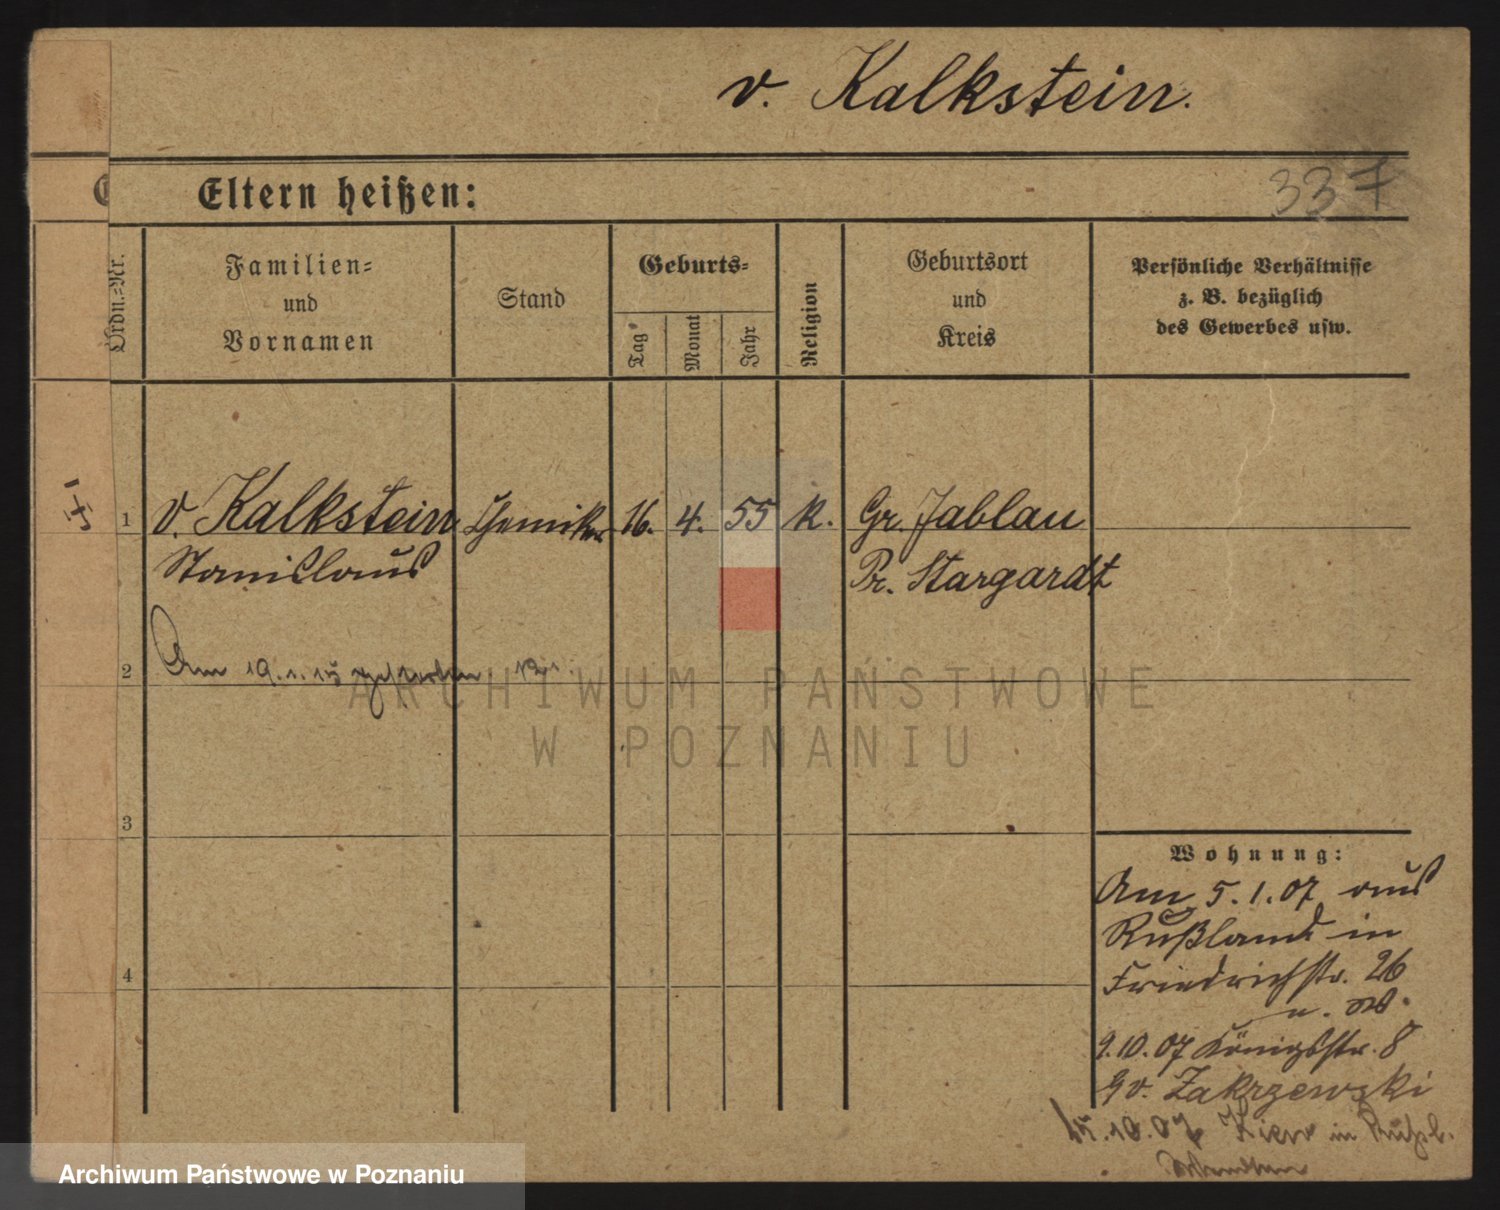 v. Kalkstein.
Eltern heißen:
337
Ordn.-Nr.
Familien-
und
Vornamen
Stand
Geburts-
Tag
Monat
Jahr
Religion
Geburtsort
und
Kreis
Persönliche Verhältnisse
z. B. bezüglich
des Gewerbes usw.
1
v. Kalkstein
Chemiker
16.
4.
55
k.
Gr. Jablau
Stanislaus
Pr. Stargardt
2
Am 19.1.15 gestorben
3
4
Wohnung:
Am 5.1.07 aus
Rußland in
Friedrichstr. 26
9.10.07 Königsstr. 8
v. Zakrzewski
15.10.07 Kiew in Rußl.
ARCHIWUM PAŃSTWOWE
W POZNANIU
Archiwum Państwowe w Poznaniu